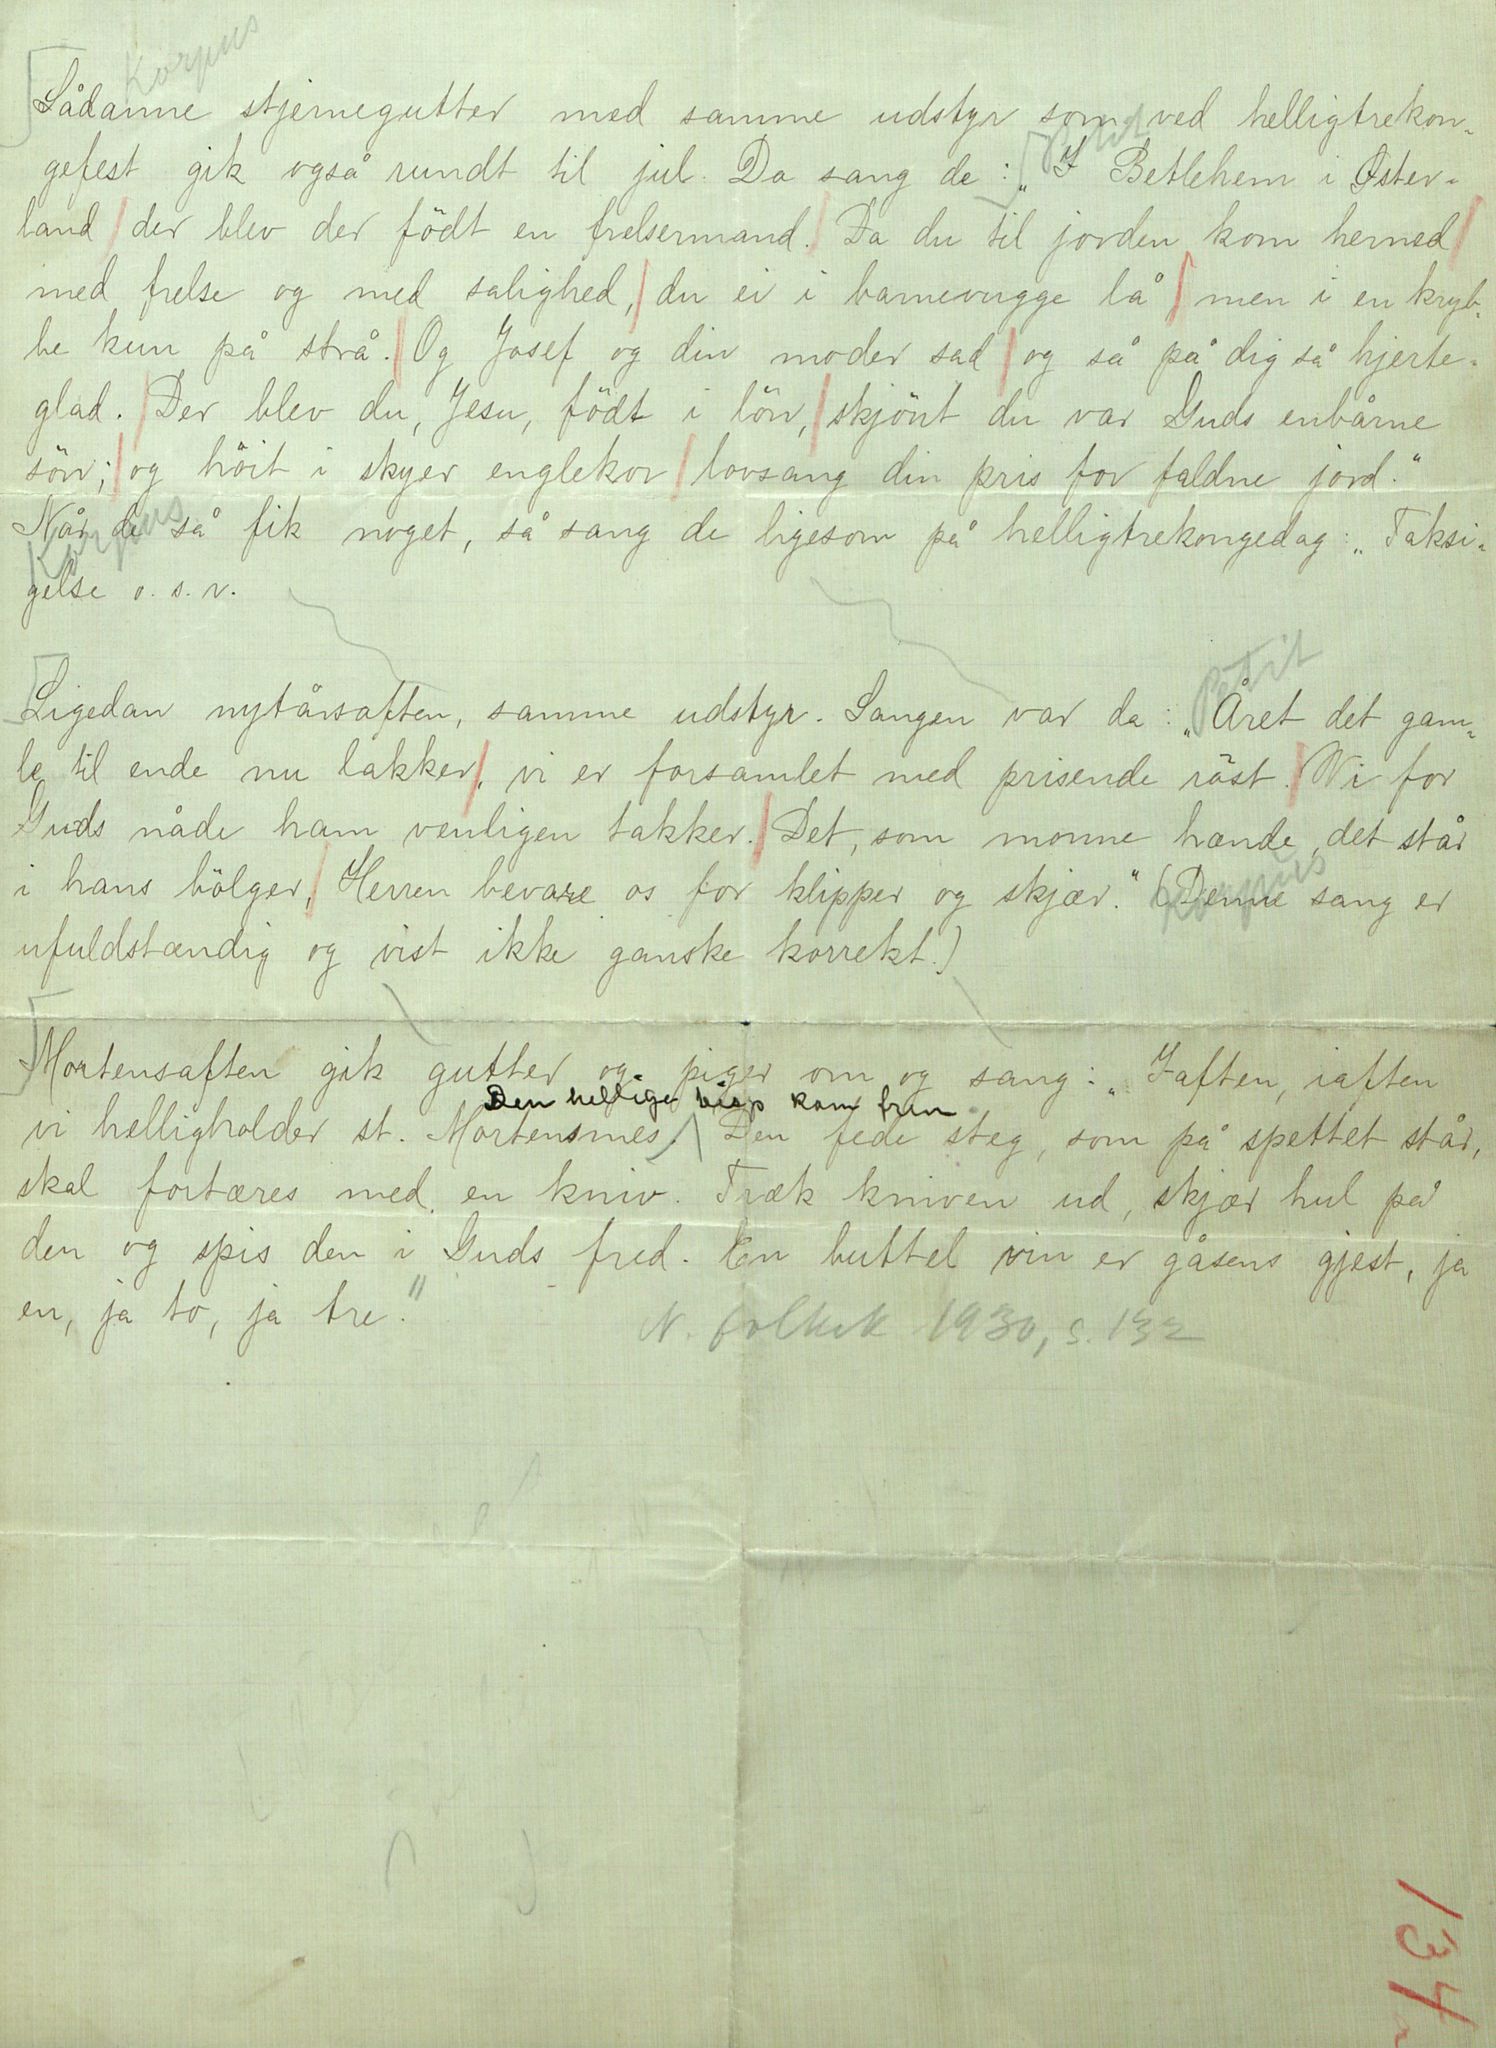 Korpus
Sådanne stjernegutter med samme udstyr som ved helligtrekon-
Petit
gefest gik også rundt til jul. Da sang de: „I Betlehem i Øster-
land / der blev der födt en frelsermand. / Da du til jorden kom herned /
med frelse og med salighed, / du ei i barnevugge lå / men i en kryb-
be kun på strå. / Og Josef og din moder sad / og så på dig så hjerte-
glad. / Der blev du, Jesu, födt i lön, / skjönt du var Guds enbårne
sön; / og höit i skyer englekor / lovsang din pris for faldne jord."
Korpus
Når de så fik noget, så sang de ligesom på helligtrekongedag: „Taksi-
gelse o. s. v.
Petit
Ligedan nytårsaften, samme udstyr. Sangen var da: „Året det gam-
le til ende nu lakker, / vi er forsamlet med prisende röst. / Vi for
Guds nåde ham venligen takker. / Det, som monne hænde, det står
i hans bölger, / Herren bevare os for klipper og skjær." (Denne sang er
Korpus
ufuldstændig og vist ikke ganske korrekt.)
Mortensaften gik gutter og piger om og sang: „Iaften, iaften
Den hellige bisp kom frem
vi helligholder st. Mortensmes. / Den fede steg, som på spettet står,
skal fortæres med en kniv. Træk kniven ud, skjær hul på
den og spis den i Guds fred. En buttel vin er gåsens gjest, ja
en, ja to, ja tre."
N. folkek 1930, s. 132
134